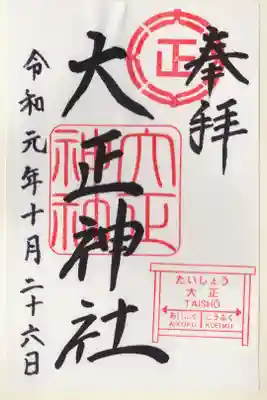 奉拝
正
大正神社
大正神社
令和元年十月二十六日
たいしょう
大正
TAISHŌ
あいこく こうふく
AIKOKU KOFUKU